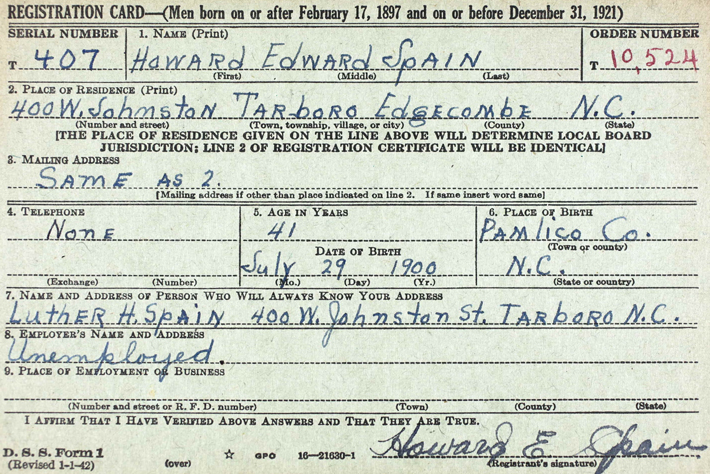 REGISTRATION CARD—(Men born on or after February 17, 1897 and on or before December 31, 1921)
SERIAL NUMBER 1. NAME (Print) ORDER NUMBER
T 407 HOWARD EDWARD SPAIN T 10,524
(First) (Middle) (Last)
2. PLACE OF RESIDENCE (Print)
400 W. Johnston TARBORO EDGECOMBE N.C.
(Number and street) (Town, township, village, or city) (County) (State)
[THE PLACE OF RESIDENCE GIVEN ON THE LINE ABOVE WILL DETERMINE LOCAL BOARD
JURISDICTION; LINE 2 OF REGISTRATION CERTIFICATE WILL BE IDENTICAL]
3. MAILING ADDRESS
SAME AS 2.
[Mailing address if other than place indicated on line 2. If same insert word same]
4. TELEPHONE 5. AGE IN YEARS 6. PLACE OF BIRTH
None 41 PAMLICO Co.
DATE OF BIRTH (Town or county)
July 29 1900 N.C.
(Exchange) (Number) (Mo.) (Day) (Yr.) (State or country)
7. NAME AND ADDRESS OF PERSON WHO WILL ALWAYS KNOW YOUR ADDRESS
LUTHER H. SPAIN 400 W. Johnston St. TARBORO N.C.
8. EMPLOYER'S NAME AND ADDRESS
Unemployed.
9. PLACE OF EMPLOYMENT OR BUSINESS
(Number and street or R. F. D. number) (Town) (County) (State)
I AFFIRM THAT I HAVE VERIFIED ABOVE ANSWERS AND THAT THEY ARE TRUE.
D. S. S. Form 1 Howard E Spain
(Revised 1-1-42) (over) ☆ GPO 16—21630-1 (Registrant's signature)